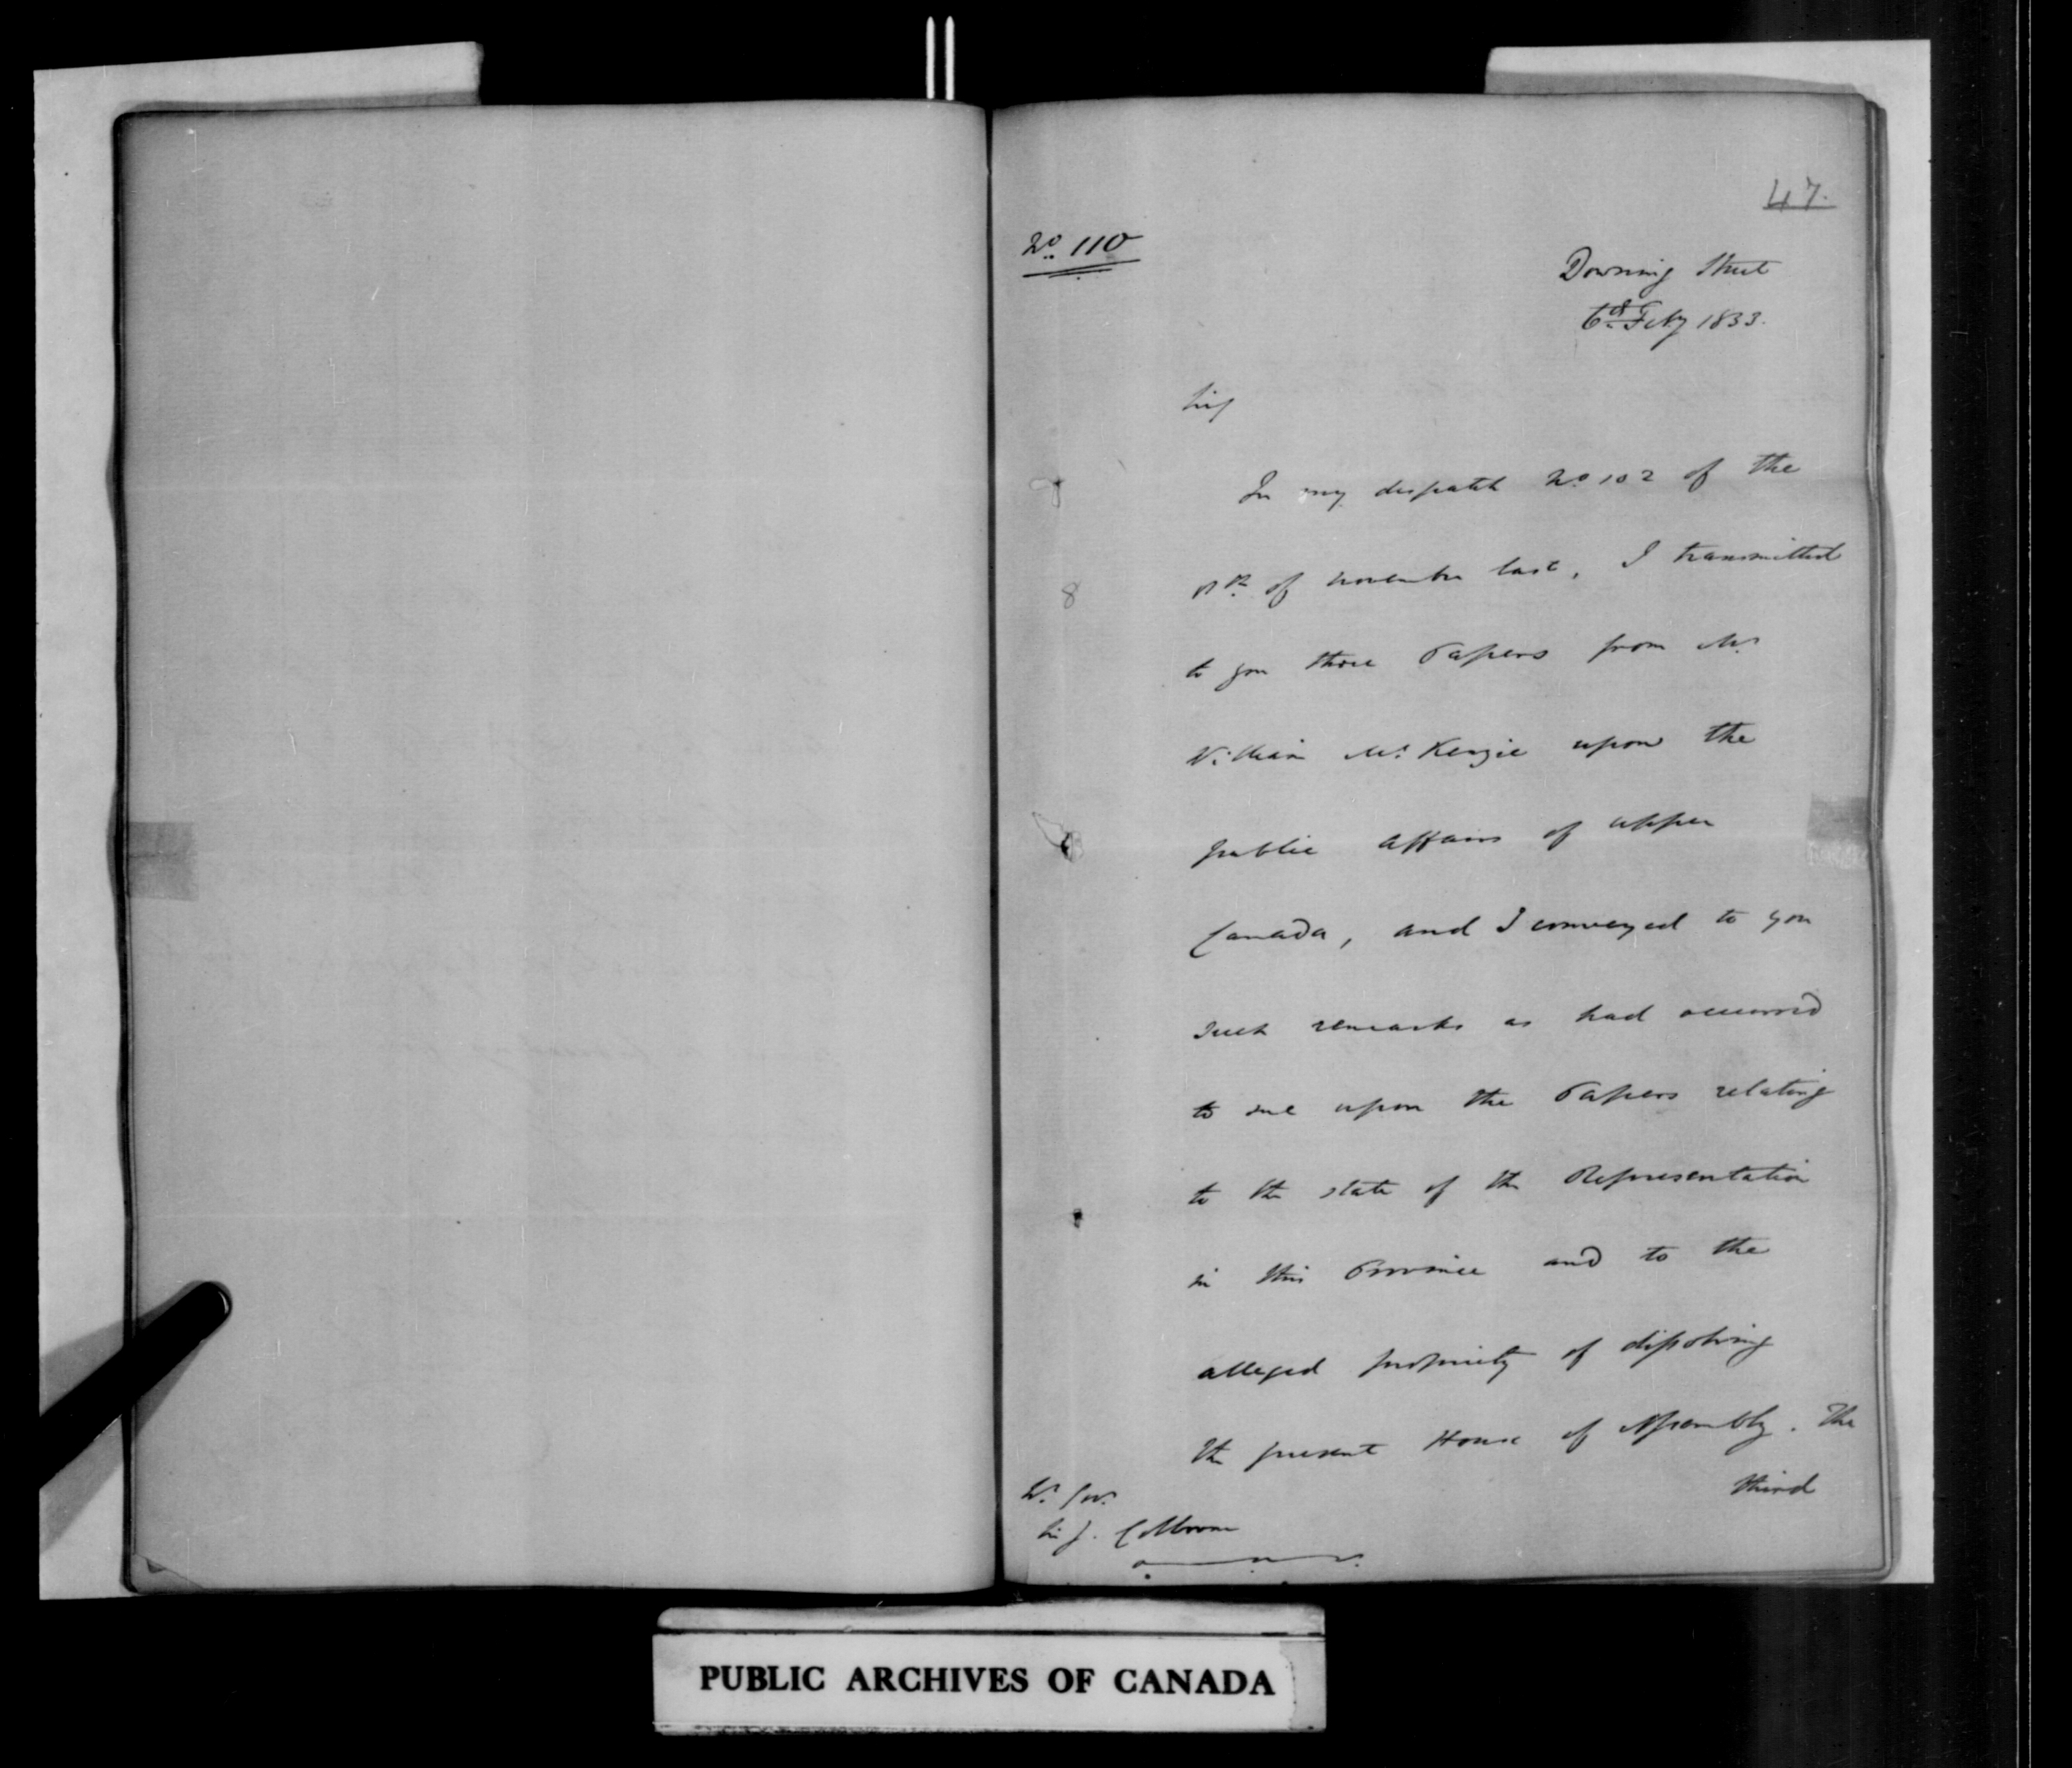 47.
No. 110
Downing Street
6th Feby 1833.
Sir
In my dispatch No. 102 of the
8th of November last, I transmitted
to you three Papers from Mr.
William McKenzie upon the
public affairs of Upper
Canada, and I conveyed to you
such remarks as had occurred
to me upon the Papers relating
to the state of the Representation
in this Province and to the
alleged propriety of dissolving
the present House of Assembly. The
third
Sir J. Colborne
PUBLIC ARCHIVES OF CANADA